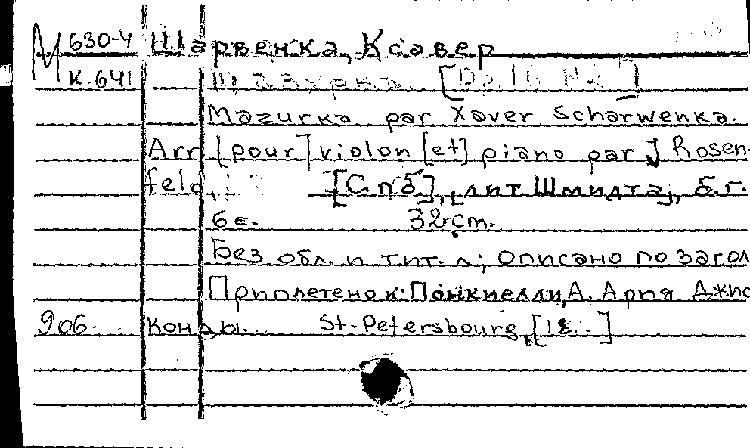 М 630-4 Шарвенка, Ксавер
К.641 Мазурка. [Op.16 №2]
Mazurka par Xaver Scharwenka.
Arr [pour] violon [et] piano par J Rosen-
feld, [Спб], [лит Шмидта], б.г.
6 с. 32 cm.
Без обл. и тит. л; описано по загол
Приплетено к: Понкиелли, А. Ария Джио
906 St-Petersbourg,